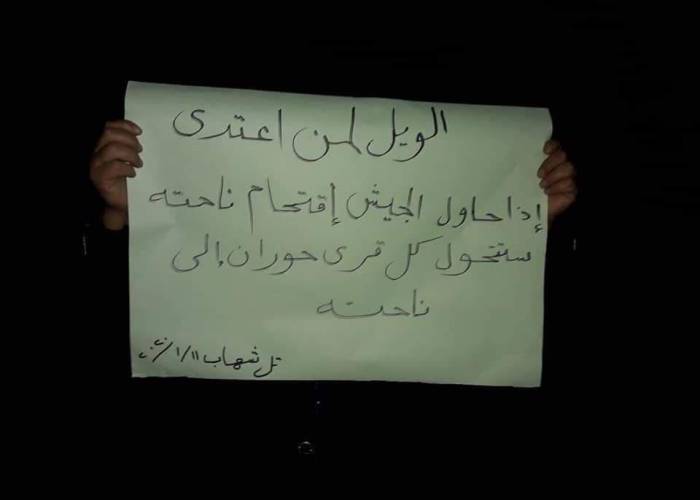 الويل لمن اعتدى
إذا حاول الجيش إقتحام ناحته
ستتحول كل قرى حوران إلى
ناحته
تل شهاب ١/١١/